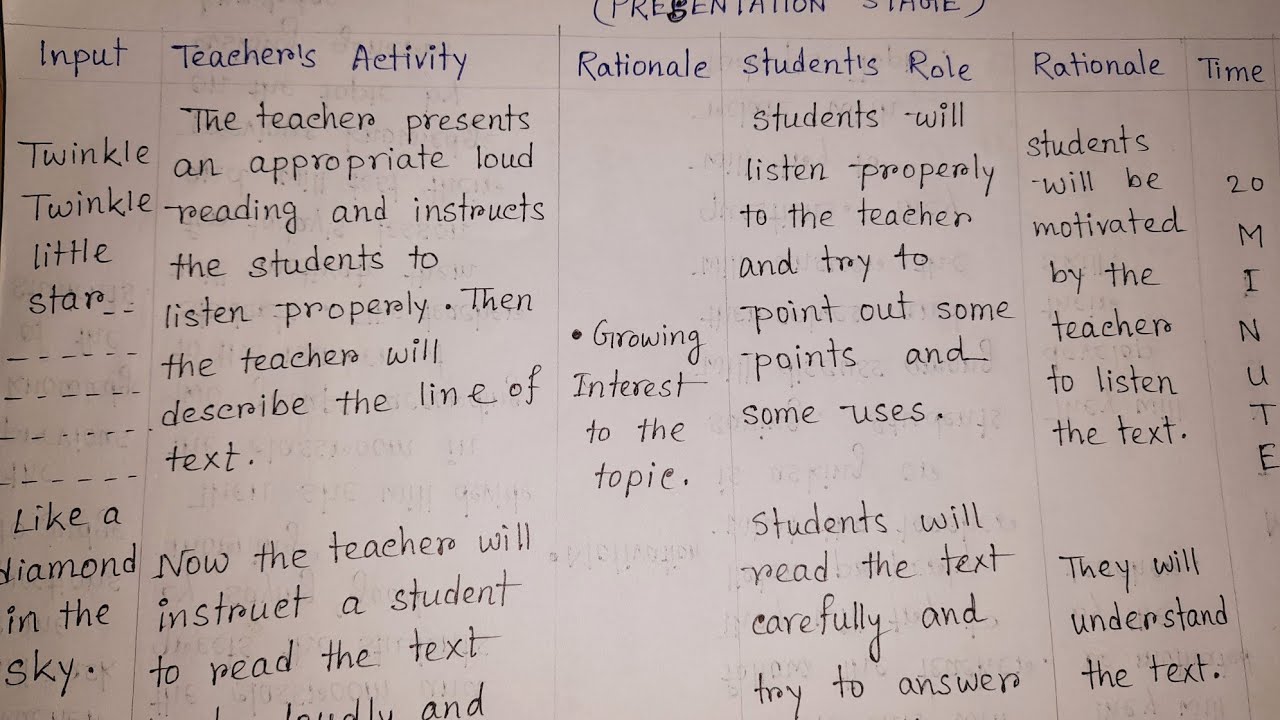 (PRESENTATION STAGE)
Input
Teacher's Activity
Rationale
Student's Role
Rationale
Time
Twinkle
Twinkle
little
star_ _
_ _ _ _ _ _
_ _ _ _ _ _
_ _ _ _ _ _
_ _ _ _ _ _
Like a
diamond
in the
sky.
The teacher presents
an appropriate loud
reading and instructs
the students to
listen properly. Then
the teacher will
describe the line of
text.
Now the teacher will
instruct a student
to read the text
loudly and
• Growing
Interest
to the
topic.
Students will
listen properly
to the teacher
and try to
point out some
points and
some uses.
Students will
read the text
carefully and
try to answer
students
will be
motivated
by the
teacher
to listen
the text.
They will
understand
the text.
20
M
I
N
U
T
E